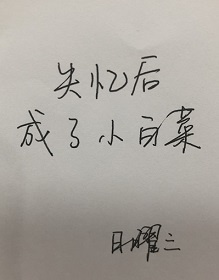 失忆后
成了小白菜
日曜三